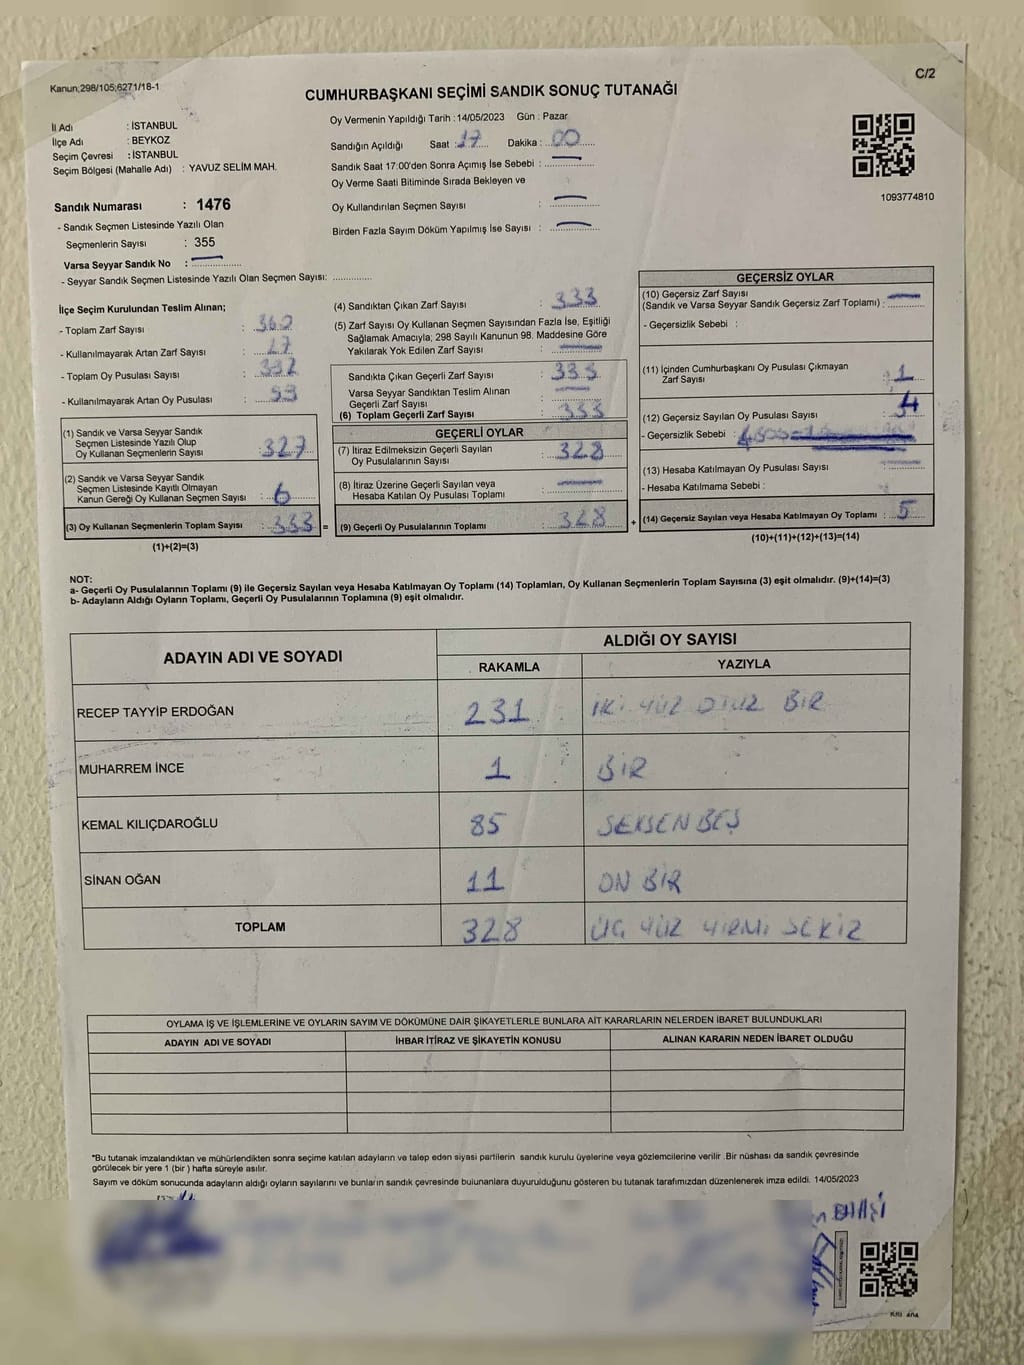 Kanun;298/105;6271/18-1
C/2
CUMHURBAŞKANI SEÇİMİ SANDIK SONUÇ TUTANAĞI
İl Adı : İSTANBUL
İlçe Adı : BEYKOZ
Seçim Çevresi : İSTANBUL
Seçim Bölgesi (Mahalle Adı) : YAVUZ SELİM MAH.
Sandık Numarası : 1476
- Sandık Seçmen Listesinde Yazılı Olan
Seçmenlerin Sayısı : 355
Varsa Seyyar Sandık No :
- Seyyar Sandık Seçmen Listesinde Yazılı Olan Seçmen Sayısı: ..............
Oy Vermenin Yapıldığı Tarih :14/05/2023 Gün : Pazar
Sandığın Açıldığı Saat : 17 Dakika : 00
Sandık Saat 17:00'den Sonra Açımış İse Sebebi :
Oy Verme Saati Bitiminde Sırada Bekleyen ve
Oy Kullandırılan Seçmen Sayısı :
Birden Fazla Sayım Döküm Yapılmış İse Sayısı :
1093774810
İlçe Seçim Kurulundan Teslim Alınan;
- Toplam Zarf Sayısı : 360
- Kullanılmayarak Artan Zarf Sayısı : 27
- Toplam Oy Pusulası Sayısı :
- Kullanılmayarak Artan Oy Pusulası :
(1) Sandık ve Varsa Seyyar Sandık
Seçmen Listesinde Yazılı Olup
Oy Kullanan Seçmenlerin Sayısı : 327
(2) Sandık ve Varsa Seyyar Sandık
Seçmen Listesinde Kayıtlı Olmayan
Kanun Gereği Oy Kullanan Seçmen Sayısı : 6
(3) Oy Kullanan Seçmenlerin Toplam Sayısı : 333 =
(1)+(2)=(3)
(4) Sandıktan Çıkan Zarf Sayısı : 333
(5) Zarf Sayısı Oy Kullanan Seçmen Sayısından Fazla İse, Eşitliği
Sağlamak Amacıyla; 298 Sayılı Kanunun 98. Maddesine Göre
Yakılarak Yok Edilen Zarf Sayısı :
Sandıkta Çıkan Geçerli Zarf Sayısı : 333
Varsa Seyyar Sandıktan Teslim Alınan
Geçerli Zarf Sayısı :
(6) Toplam Geçerli Zarf Sayısı : 333
GEÇERLİ OYLAR
(7) İtiraz Edilmeksizin Geçerli Sayılan
Oy Pusulalarının Sayısı : 328
(8) İtiraz Üzerine Geçerli Sayılan veya
Hesaba Katılan Oy Pusulası Toplamı :
(9) Geçerli Oy Pusulalarının Toplamı : 328 +
GEÇERSİZ OYLAR
(10) Geçersiz Zarf Sayısı
(Sandık ve Varsa Seyyar Sandık Geçersiz Zarf Toplamı) :
- Geçersizlik Sebebi :
(11) İçinden Cumhurbaşkanı Oy Pusulası Çıkmayan
Zarf Sayısı : 1
(12) Geçersiz Sayılan Oy Pusulası Sayısı : 4
- Geçersizlik Sebebi :
(13) Hesaba Katılmayan Oy Pusulası Sayısı :
- Hesaba Katılmama Sebebi :
(14) Geçersiz Sayılan veya Hesaba Katılmayan Oy Toplamı : 5
(10)+(11)+(12)+(13)=(14)
NOT:
a- Geçerli Oy Pusulalarının Toplamı (9) ile Geçersiz Sayılan veya Hesaba Katılmayan Oy Toplamı (14) Toplamları, Oy Kullanan Seçmenlerin Toplam Sayısına (3) eşit olmalıdır. (9)+(14)=(3)
b- Adayların Aldığı Oyların Toplamı, Geçerli Oy Pusulalarının Toplamına (9) eşit olmalıdır.
ADAYIN ADI VE SOYADI
ALDIĞI OY SAYISI
RAKAMLA YAZIYLA
RECEP TAYYİP ERDOĞAN 231 İKİ YÜZ OTUZ BİR
MUHARREM İNCE 1 BİR
KEMAL KILIÇDAROĞLU 85 SEKSEN BEŞ
SİNAN OĞAN 11 ON BİR
TOPLAM 328 ÜÇ YÜZ YİRMİ SEKİZ
OYLAMA İŞ VE İŞLEMLERİNE VE OYLARIN SAYIM VE DÖKÜMÜNE DAİR ŞİKAYETLERLE BUNLARA AİT KARARLARIN NELERDEN İBARET BULUNDUKLARI
ADAYIN ADI VE SOYADI İHBAR İTİRAZ VE ŞİKAYETİN KONUSU ALINAN KARARIN NEDEN İBARET OLDUĞU
*Bu tutanak imzalandıktan ve mühürlendikten sonra seçime katılan adayların ve talep eden siyasi partilerin sandık kurulu üyelerine veya gözlemcilerine verilir .Bir nüshası da sandık çevresinde
görülecek bir yere 1 (bir ) hafta süreyle asılır.
Sayım ve döküm sonucunda adayların aldığı oyların sayılarını ve bunların sandık çevresinde bulunanlara duyurulduğunu gösteren bu tutanak tarafımızdan düzenlenerek imza edildi. 14/05/2023